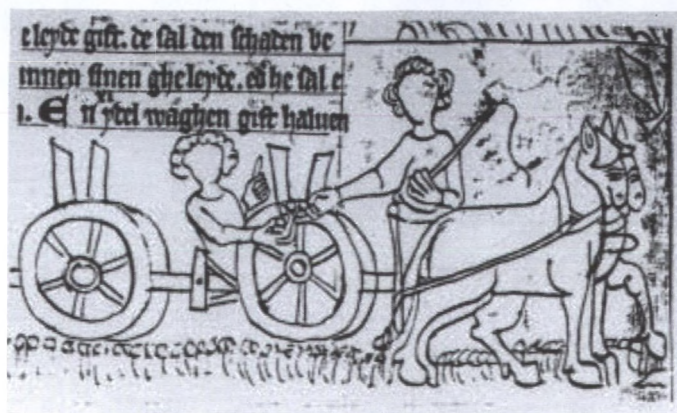 eleyde gift. de sal den schaden be
innen sinen gheleyde. eds he sal e
n. En ytel waghen gift haluen